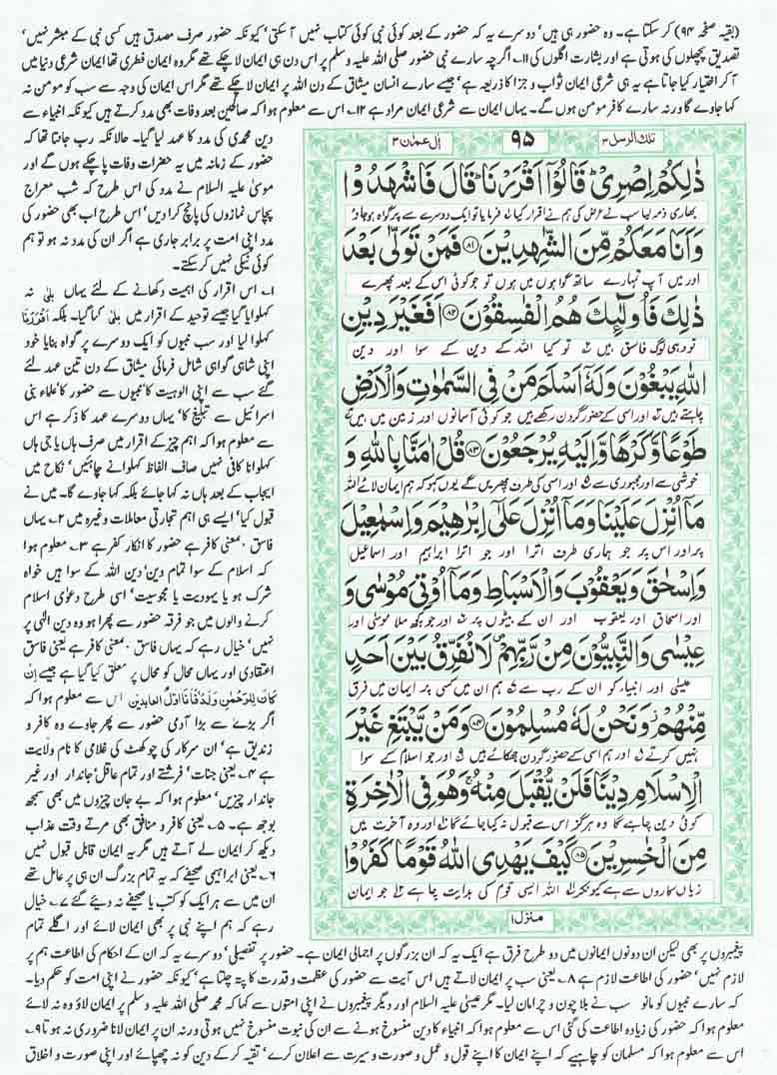 (بقیہ صفحہ ۹۴) کر سکتا ہے۔ وہ حضور ہی ہیں' دوسرے یہ کہ حضور کے بعد کوئی نبی کوئی کتاب نہیں آ سکتی' کیونکہ حضور صرف مصدق ہیں کسی نبی کے مبشر نہیں'
تصدیق پچھلوں کی ہوتی ہے اور بشارت اگلوں کی ۱۱۔ اگرچہ سارے نبی حضور صلی اللہ علیہ وسلم پر اس دن ہی ایمان لا چکے تھے مگر وہ ایمان فطری تھا ایمان شرعی دنیا میں
آ کر اختیار کیا جاتا ہے یہ ہی شرعی ایمان ثواب و جزا کا ذریعہ ہے' جیسے سارے انسان میثاق کے دن اللہ پر ایمان لا چکے تھے مگر اس ایمان کی وجہ سے سب کو مومن نہ
کہا جاوے گا ورنہ سارے کافر مومن ہوں گے۔ یہاں ایمان سے شرعی ایمان مراد ہے ۱۲۔ اس سے معلوم ہوا کہ صالحین بعد وفات بھی مدد کرتے ہیں کیونکہ انبیاء سے
دین محمدی کی مدد کا عہد لیا گیا۔ حالانکہ رب جانتا تھا کہ
حضور کے زمانہ میں یہ حضرات وفات پا چکے ہوں گے اور
موسیٰ علیہ السلام نے مدد کی اس طرح کہ شب معراج
پچاس نمازوں کی پانچ کرا دیں' اس طرح اب بھی حضور کی
مدد اپنی امت پر برابر جاری ہے اگر ان کی مدد نہ ہو تو ہم
کوئی نیکی نہیں کر سکتے۔
۱۔ اس اقرار کی اہمیت دکھانے کے لئے یہاں بلیٰ نہ
کہلوایا گیا جیسے توحید کے اقرار میں بلیٰ کہا گیا۔ بلکہ اَقْرَرْنَا
کہلوا لیا اور سب نبیوں کو ایک دوسرے پر گواہ بنایا خود
اپنی شاہی گواہی شامل فرمائی میثاق کے دن تین عہد لئے
گئے سب سے اپنی الوہیت کا' نبیوں سے حضور کا' علماء بنی
اسرائیل سے تبلیغ کا' یہاں دوسرے عہد کا ذکر ہے اس
سے معلوم ہوا کہ اہم چیز کے اقرار میں صرف ہاں یا جی ہاں
کہلوانا کافی نہیں صاف الفاظ کہلوانے چاہئیں' نکاح میں
ایجاب کے بعد ہاں نہ کہا جائے بلکہ کہا جاوے گا۔ میں نے
قبول کیا' ایسے ہی اہم تجارتی معاملات وغیرہ میں ۲۔ یہاں
فاسق بمعنی کافر ہے حضور کا انکار کفر ہے ۳۔ معلوم ہوا
کہ اسلام کے سوا تمام دین' دین اللہ کے سوا ہیں خواہ
شرک ہو یا یہودیت یا مجوسیت' اسی طرح دعویٰ اسلام
کرنے والوں میں جو فرقہ حضور سے پھرا ہو وہ دین الٰہی پر
نہیں' خیال رہے کہ یہاں فاسق بمعنی کافر ہے یعنی فاسق
اعتقادی اور یہاں محال کو محال پر معلق کیا گیا ہے جیسے اِنْ
كَانَ لِلرَّحْمٰنِ وَلَدٌ فَاَنَا اَوَّلُ العابدین اس سے معلوم ہوا کہ
اگر بڑے سے بڑا آدمی حضور سے پھر جاوے وہ کافر و
زندیق ہے' ان سرکار کی چوکھٹ کی غلامی کا نام ولایت
ہے ۴۔ یعنی جنات' فرشتے اور تمام عاقل' جاندار اور غیر
جاندار چیزیں' معلوم ہوا کہ بے جان چیزوں میں بھی سمجھ
بوجھ ہے۔ ۵۔ یعنی کافر و منافق بھی مرتے وقت عذاب
دیکھ کر ایمان لے آتے ہیں مگر یہ ایمان قابل قبول نہیں
۶۔ یعنی ابراہیمی صحیفے کہ یہ تمام بزرگ ان ہی پر عامل تھے
ان میں سے ہر ایک کو کتب یا صحیفے نہ دیئے گئے ۷۔ خیال
رہے کہ ہم اپنے نبی پر بھی ایمان لائے اور اگلے تمام
تلك الرسل ۳ ۹۵ اٰل عمرٰن ۳
ذٰلِكُمْ اِصْرِیْ ؕ قَالُوْۤا اَقْرَرْنَا ؕ قَالَ فَاشْهَدُوْا
بھاری ذمہ لیا سب نے عرض کی ہم نے اقرار کیا فرمایا تو ایک دوسرے پر گواہ ہو جاؤ
وَ اَنَا مَعَكُمْ مِّنَ الشّٰهِدِیْنَ ۸۱ فَمَنْ تَوَلّٰی بَعْدَ
اور میں آپ تمہارے ساتھ گواہوں میں ہوں تو جو کوئی اس کے بعد پھرے
ذٰلِكَ فَاُولٰٓئِكَ هُمُ الْفٰسِقُوْنَ ۸۲ اَفَغَیْرَ دِیْنِ
تو وہی لوگ فاسق ہیں تو کیا اللہ کے دین کے سوا اور دین
اللّٰهِ یَبْغُوْنَ وَ لَهٗۤ اَسْلَمَ مَنْ فِی السَّمٰوٰتِ وَ الْاَرْضِ
چاہتے ہیں اور اسی کے حضور گردن رکھے ہیں جو کوئی آسمانوں اور زمین میں ہیں
طَوْعًا وَّ كَرْهًا وَّ اِلَیْهِ یُرْجَعُوْنَ ۸۳ قُلْ اٰمَنَّا بِاللّٰهِ وَ
خوشی سے اور مجبوری سے اور اسی کی طرف پھریں گے یوں کہو کہ ہم ایمان لائے اللہ
مَاۤ اُنْزِلَ عَلَیْنَا وَ مَاۤ اُنْزِلَ عَلٰۤی اِبْرٰهِیْمَ وَ اِسْمٰعِیْلَ
پر اور اس پر جو ہماری طرف اترا اور جو اترا ابراہیم اور اسماعیل
وَ اِسْحٰقَ وَ یَعْقُوْبَ وَ الْاَسْبَاطِ وَ مَاۤ اُوْتِیَ مُوْسٰی وَ
اور اسحاق اور یعقوب اور ان کے بیٹوں پر اور جو کچھ ملا موسیٰ اور
عِیْسٰی وَ النَّبِیُّوْنَ مِنْ رَّبِّهِمْ ۪ لَا نُفَرِّقُ بَیْنَ اَحَدٍ
عیسیٰ اور انبیاء کو ان کے رب سے ہم ان میں کسی پر ایمان میں فرق
مِّنْهُمْ ؗ وَ نَحْنُ لَهٗ مُسْلِمُوْنَ ۸۴ وَ مَنْ یَّبْتَغِ غَیْرَ
نہیں کرتے اور ہم اسی کے حضور گردن جھکائے ہیں اور جو اسلام کے سوا
الْاِسْلَامِ دِیْنًا فَلَنْ یُّقْبَلَ مِنْهُ ۚ وَ هُوَ فِی الْاٰخِرَةِ
کوئی دین چاہے گا وہ ہرگز اس سے قبول نہ کیا جائے گا اور وہ آخرت میں
مِنَ الْخٰسِرِیْنَ ۸۵ كَیْفَ یَهْدِی اللّٰهُ قَوْمًا كَفَرُوْا
زیاں کاروں سے ہے کیونکر اللہ ایسی قوم کی ہدایت چاہے جو ایمان
منزل ۱
پیغمبروں پر بھی لیکن ان دونوں ایمانوں میں دو طرح فرق ہے ایک یہ کہ ان بزرگوں پر اجمالی ایمان ہے۔ حضور پر تفصیلی' دوسرے یہ کہ ان کے احکام کی اطاعت ہم پر
لازم نہیں' حضور کی اطاعت لازم ہے ۸۔ یعنی سب پر ایمان لاتے ہیں اس آیت سے حضور کی عظمت و قدرت کا پتہ چلتا ہے' کیونکہ حضور نے اپنی امت کو حکم دیا۔
کہ سارے نبیوں کو مانو سب نے بلا چون و چرا مان لیا۔ مگر عیسیٰ علیہ السلام اور دیگر پیغمبروں نے اپنی امتوں سے کہا کہ محمد صلی اللہ علیہ وسلم پر ایمان لاؤ وہ نہ لائے
معلوم ہوا کہ حضور کی زیادہ اطاعت کی گئی اس سے معلوم ہوا کہ انبیاء کا دین منسوخ ہونے سے ان کی نبوت منسوخ نہیں ہوتی ورنہ ان پر ایمان لانا ضروری نہ ہو تا ۹۔
اس سے معلوم ہوا کہ مسلمان کو چاہیے کہ اپنے ایمان کا اپنے قول و عمل و صورت و سیرت سے اعلان کرے' تقیہ کر کے دین کو نہ چھپائے اور اپنی صورت و اخلاق